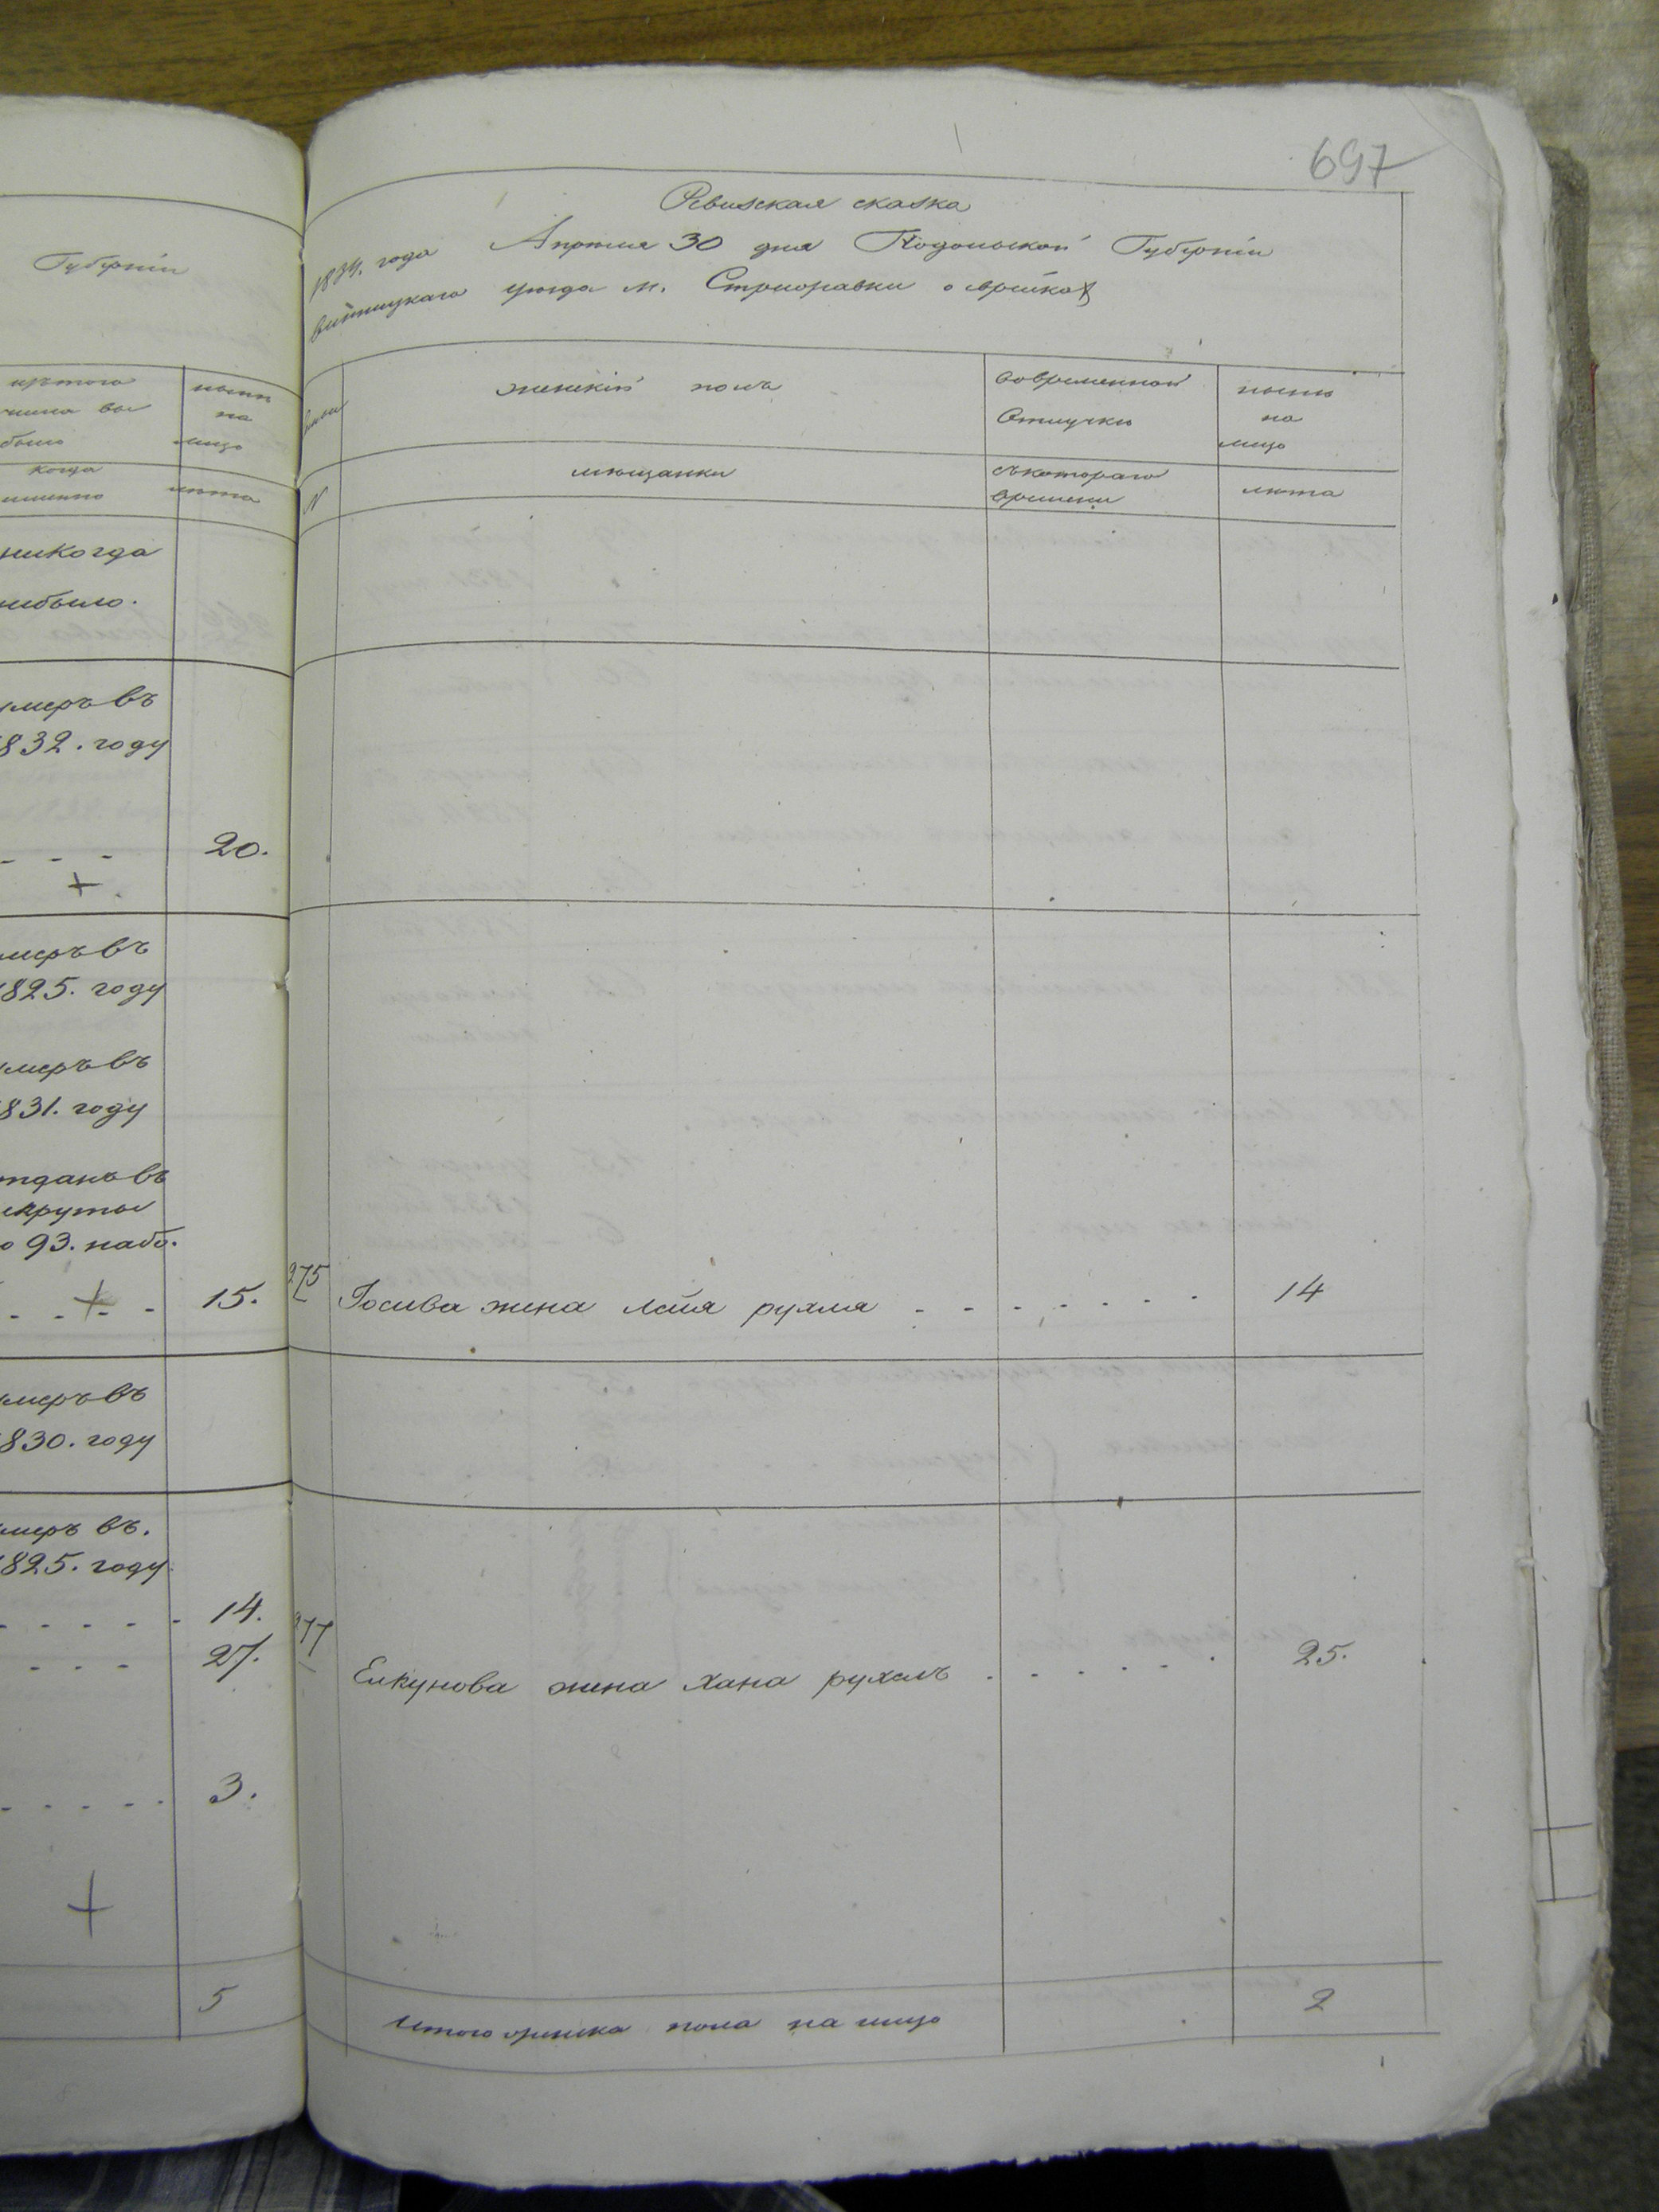 Губерніи
изтого
числа вы
было
когда
именно
нынѣ
на
лицо
лѣта
никогда
небыло.
умеръ въ
1832. году
20.
+
умеръ въ
1825. году
умеръ въ
1831. году
отданъ въ
рекруты
по 93. наб.
+ 15.
умеръ въ
1830. году
умеръ въ.
1825. году
14.
27.
3.
+
5
697
Ревизская сказка
1834. года Апрѣля 30 дня Подольской Губерніи
винницкаго уезда м. Стрыжавки о еврейках
женскій полъ
вовременной
Отлучки
нынѣ
на
лицо
N
мещанки
съкотораго
времени
лѣта
275 Іосива жена лея рухля 14
277 Елкунова жена хана рухель 25.
Итого женска пола на лицо 2